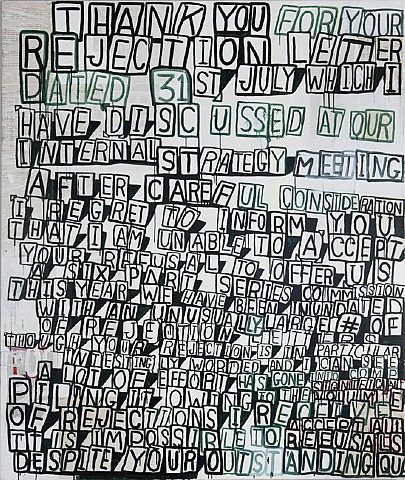 THANK YOU FOR YOUR
REJECTION LETTER
DATED 31ST JULY WHICH I
HAVE DISCUSSED AT OUR
INTERNAL STRATEGY MEETING
AFTER CAREFUL CONSIDERATION
I REGRET TO INFORM YOU
THAT I AM UNABLE TO ACCEPT
YOUR REFUSAL TO OFFER US
A SIX PART SERIES COMMISSION
THIS YEAR WE HAVE BEEN INUNDATED
WITH AN UNUSUALLY LARGE # OF
OF REJECTION LETTERS
THOUGH YOUR REJECTION IS IN PARTICULAR
INTERESTINGLY WORDED AND I CAN SEE
A LOT OF EFFORT HAS GONE INTO
PILING IT OWING TO THE
OF REJECTIONS I RECEIVE
IT IS IMPOSSIBLE TO REFUSALS
DESPITE YOUR OUTSTANDING QU